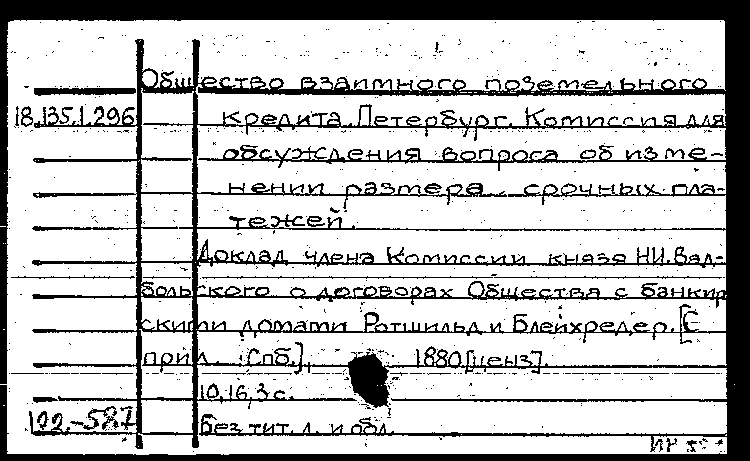 Общество взаимного поземельного
18.135.1.296 кредита. Петербург. Комиссия для
обсуждения вопроса об изме-
нении размера срочных пла-
тежей.
Доклад члена Комиссии князя Н.И. Вад-
больского о договорах Общества с банкир
скими домами Ротшильд и Блейхредер. [С
прил. Спб.], 1880 [ценз].
10,16,3 с.
Без тит. л. и обл.